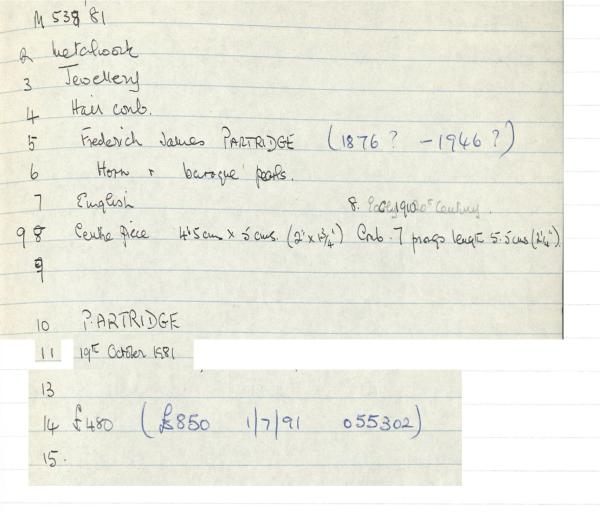 M 538 '81
2 Metalwork
3 Jewellery
4 Hair comb.
5 Frederick James PARTRIDGE (1876? - 1946?)
6 Horn & baroque pearls.
7 English 8. Century.
9 8 Centre piece 4.5cm x 5 cms. (2" x 1¾") Comb. 7 prongs length 5.5cms (2¼").
9
10 PARTRIDGE
11 19th October 1981
13
14 £480 (£850 1/7/91 055302)
15.